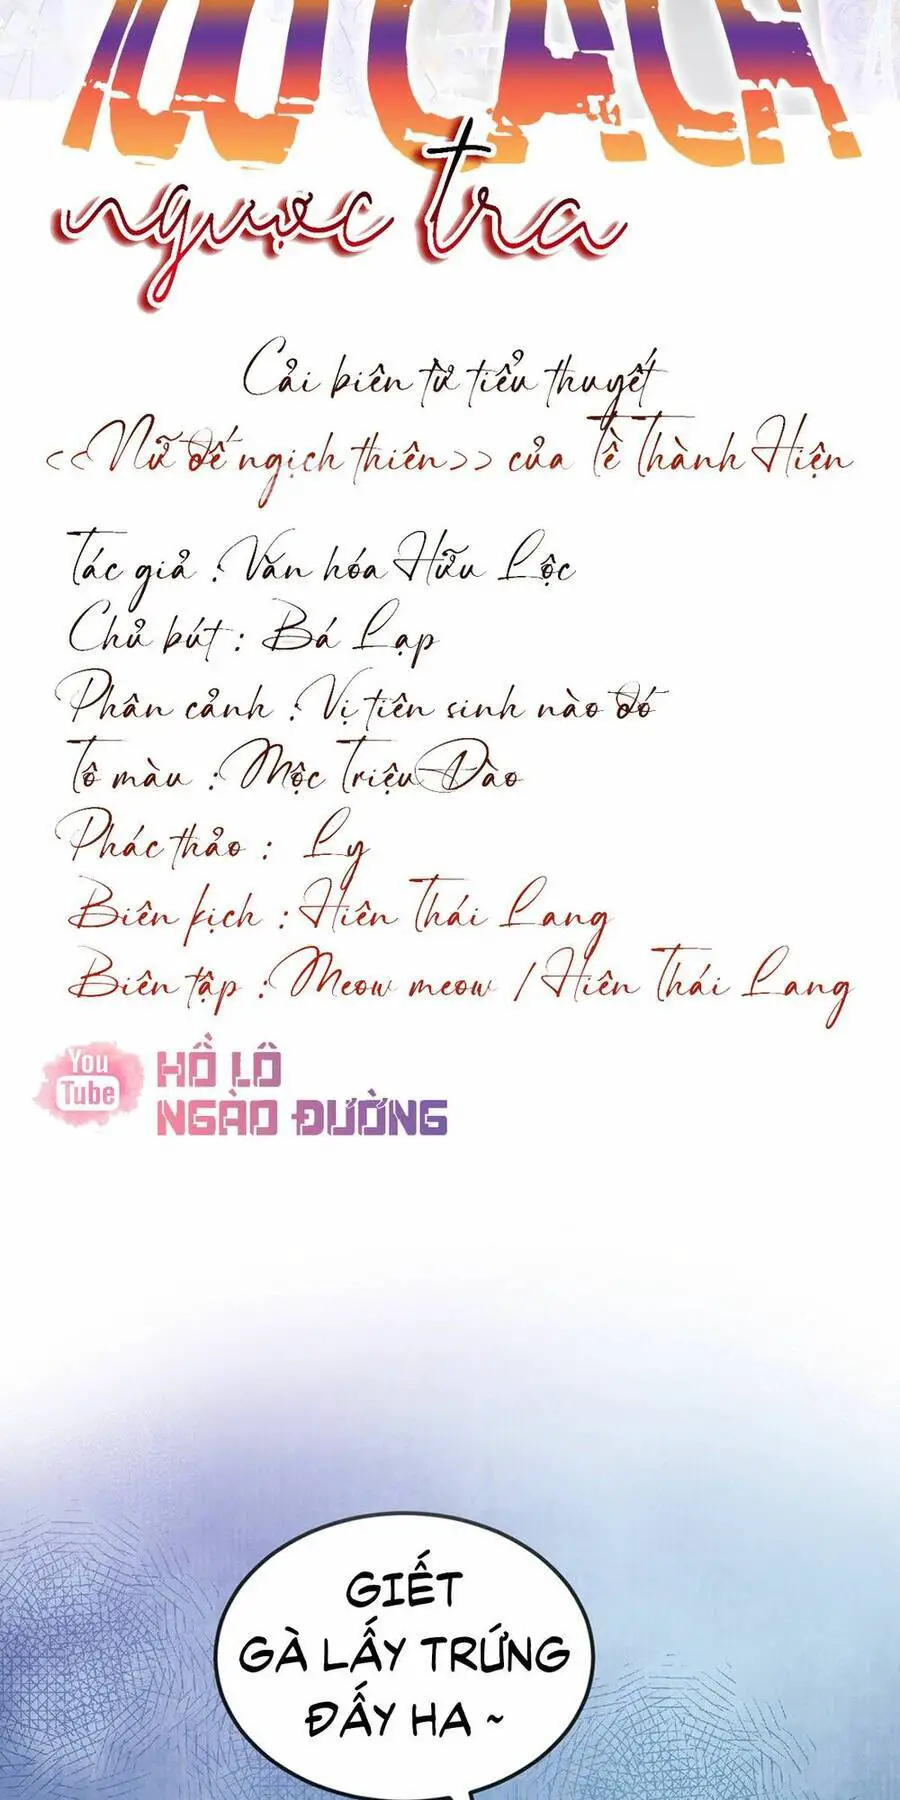 100 CÁCH
ngược tra
Cải biên từ tiểu thuyết
<<Nữ đế ngịch thiên>> của Tề Thành Hiện
Tác giả : Văn hóa Hữu Lộc
Chủ bút : Bá Lạp
Phân cảnh : Vị tiên sinh nào đó
Tô màu : Mộc Triệu Đào
Phác thảo : Ly
Biên kịch : Hiên Thái Lang
Biên tập : Meow meow / Hiên Thái Lang
You
Tube
HỒ LÔ
NGÀO ĐƯỜNG
GIẾT
GÀ LẤY TRỨNG
ĐẤY HA ~